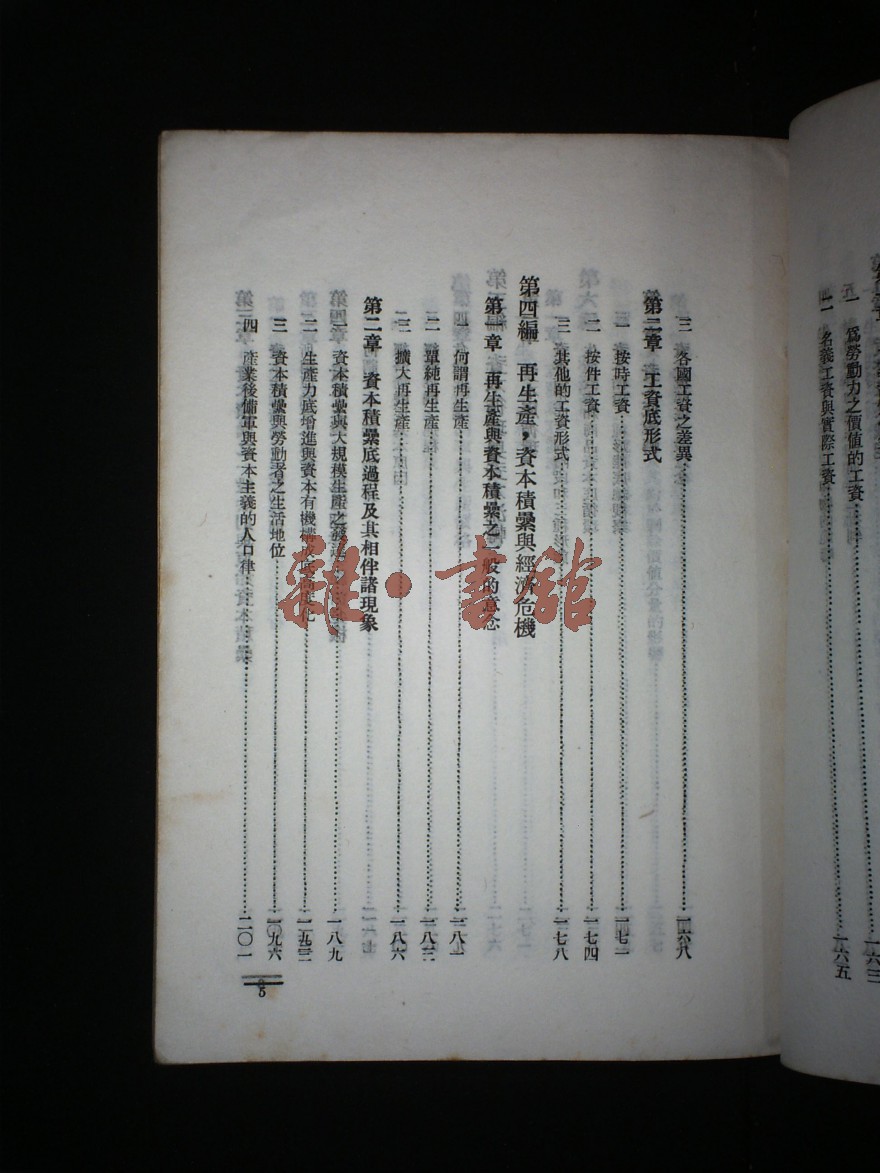 一 爲勞動力之價値的工資……一六三
二 名義工資與實際工資……一六五
三 各國工資之差異……一六八
第二章 工資底形式
一 按時工資……一七一
二 按件工資……一七四
三 其他的工資形式……一七八
第四編 再生產，資本積纍與經濟危機
第一章 再生產與資本積纍之一般的意念
一 何謂再生產……一八一
二 單純再生產……一八三
三 擴大再生產……一八六
第二章 資本積纍底過程及其相伴諸現象
一 資本積纍與大規模生產之發達……一八九
二 生產力底增進與資本有機構成底高度化……一九三
三 資本積纍與勞動者之生活地位……一九六
四 產業後備軍與資本主義的人口律……二〇一
5
雜·書館